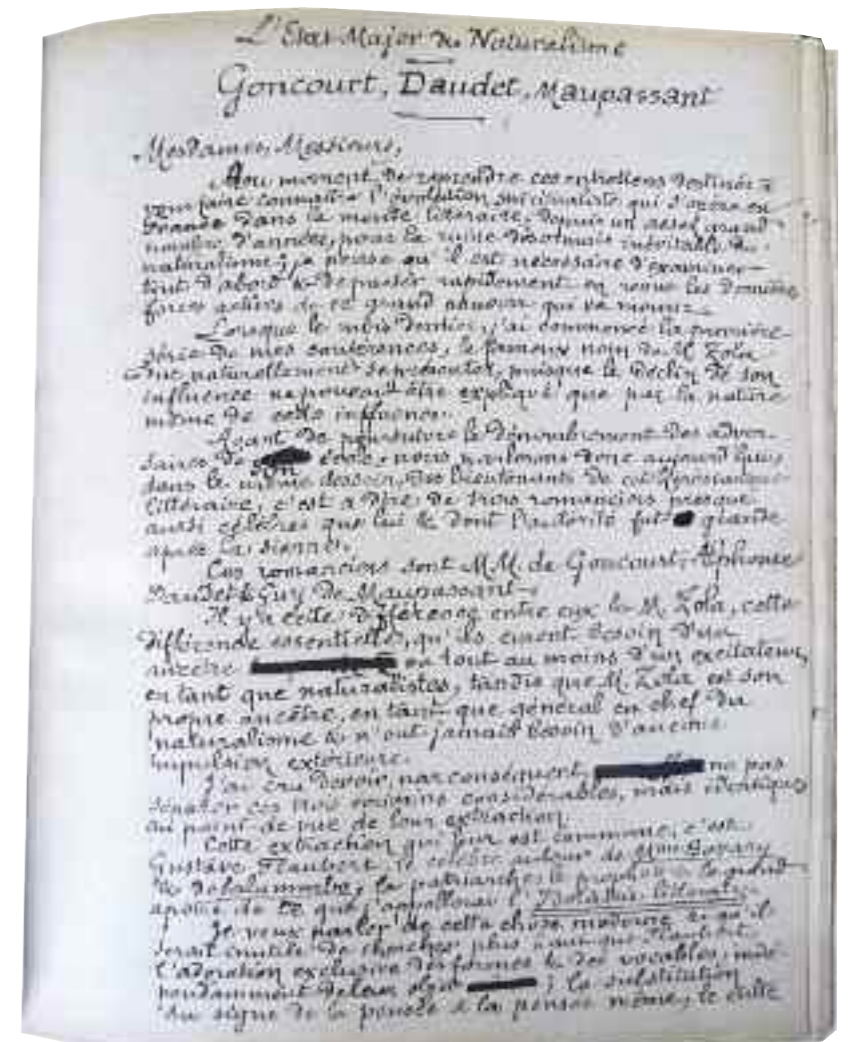 L'Etat-Major du Naturalisme
Goncourt, Daudet, Maupassant
Mesdames, Messieurs,
Au moment de reprendre ces entretiens destinés à
vous faire connaître l'évolution qui s'opère en
France dans le monde littéraire, depuis un assez grand
nombre d'années, pour la ruine désormais inévitable du
naturalisme, je pense qu'il est nécessaire d'examiner
tout d'abord & de passer rapidement en revue les dernières
forces actives de ce grand pouvoir qui va mourir.
Lorsque le mois dernier, j'ai commencé la première
série de mes conférences, le fameux nom de M. Zola
dut naturellement se présenter, puisque le déclin de son
influence ne pouvait être expliqué que par la nature
même de cette influence.
Avant de poursuivre le dénombrement des adver-
saires de école, nous parlerons donc aujourd'hui,
dans le même dessein, des lieutenants de cet
littéraire, c'est à dire de trois romanciers presque
aussi célèbres que lui & dont l'autorité fut grande
après la sienne.
Ces romanciers sont MM. de Goncourt, Alphonse
Daudet & Guy de Maupassant.
Il y a cette différence entre eux & M. Zola, cette
différence essentielle, qu'ils eurent besoin d'un
ancêtre ou tout au moins d'un excitateur,
en tant que naturalistes, tandis que M. Zola est son
propre ancêtre, en tant que général en chef du
naturalisme & n'eut jamais besoin d'aucune
impulsion extérieure.
J'ai cru devoir, par conséquent, ne pas
séparer ces trois écrivains considérables, mais identiques
au point de vue de leur extraction.
Cette extraction qui leur est commune, c'est
Gustave Flaubert, le célèbre auteur de Mme Bovary
& de Salammbô, le patriarche, le prophète & le grand
apôtre de ce que j'appellerai l'Idolâtrie littéraire.
Je veux parler de cette chose moderne & qu'il
serait inutile de chercher plus que Flaubert,
l'adoration exclusive des formes & des vocables, indé-
pendamment de leur ; la substitution
du signe de la pensée à la pensée même, le culte